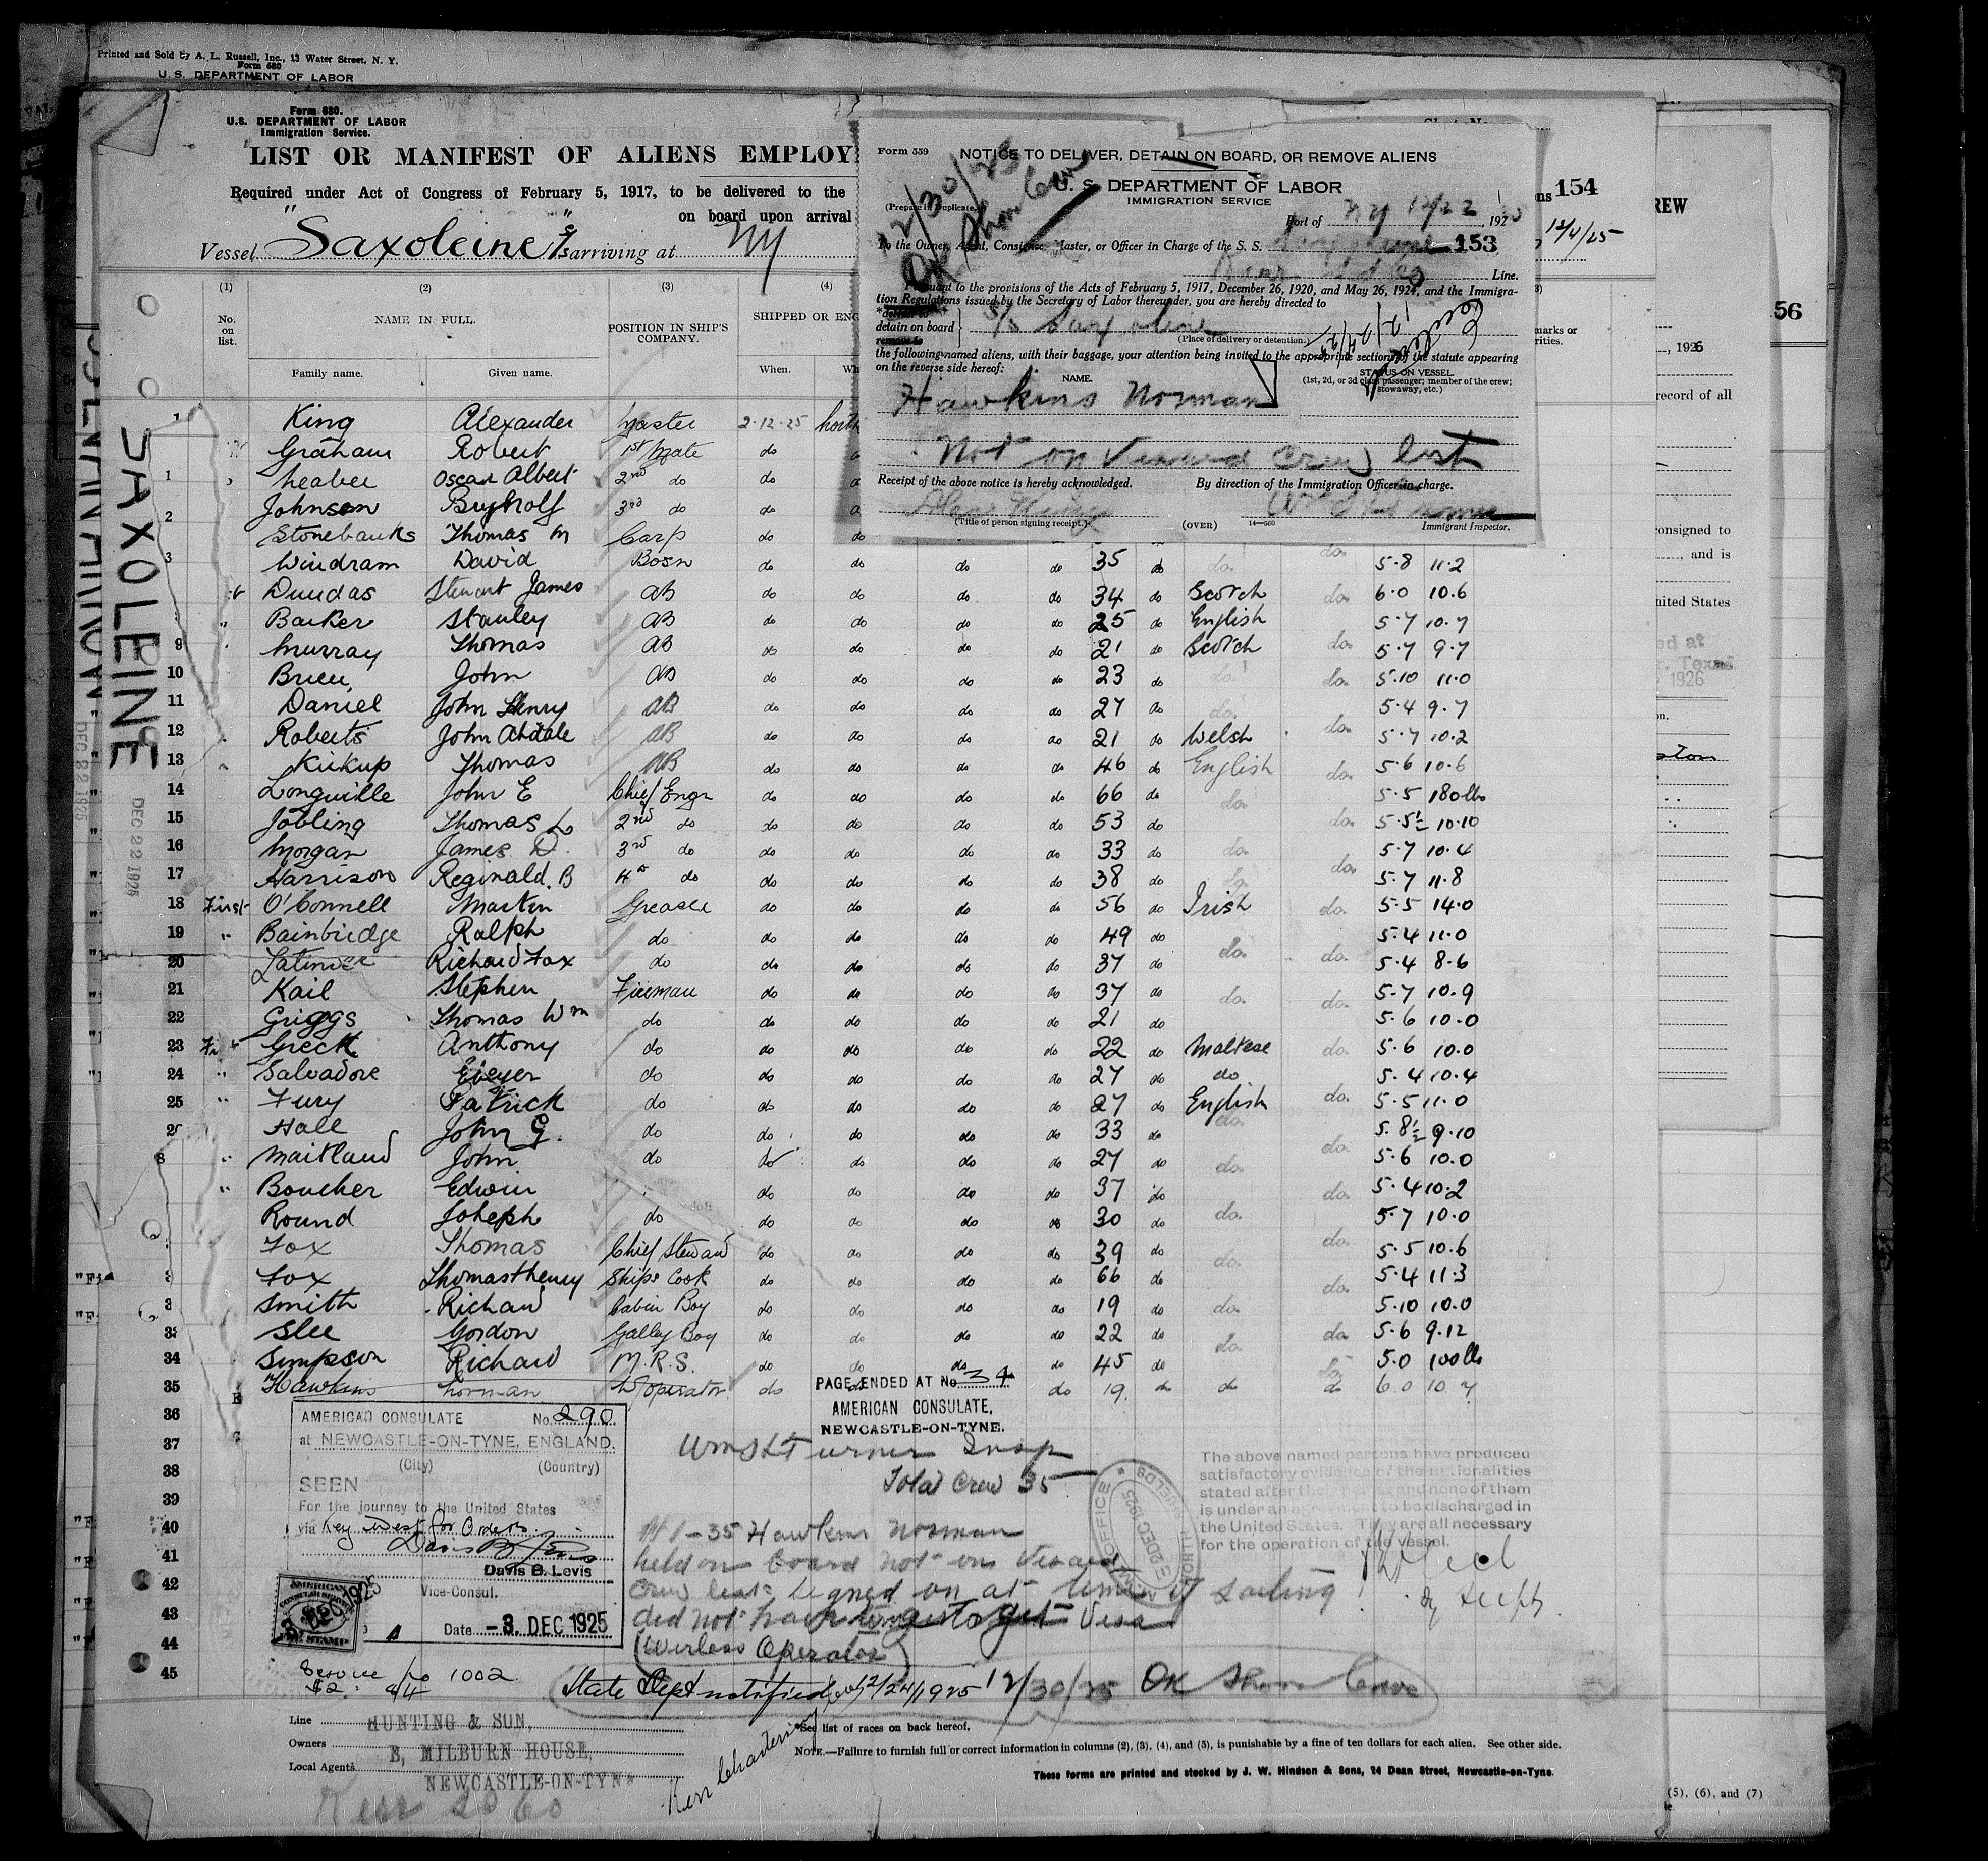 Printed and Sold by A. L. Russell, Inc., 13 Water Street, N. Y.
Form 680
U. S. DEPARTMENT OF LABOR
Form 680.
U.S. DEPARTMENT OF LABOR
Immigration Service.
LIST OR MANIFEST OF ALIENS EMPLOY
Required under Act of Congress of February 5, 1917, to be delivered to the
on board upon arrival
Vessel "Saxoleine" S/S arriving at NY
(1) (2) (3) (4)
No. on list. NAME IN FULL. POSITION IN SHIP'S COMPANY. SHIPPED OR ENG
Family name. Given name. When. Wh
Form 559 NOTICE TO DELIVER, DETAIN ON BOARD, OR REMOVE ALIENS
U. S. DEPARTMENT OF LABOR
IMMIGRATION SERVICE
(Prepare in Duplicate.)
12/30/25
OK Shore leave
Port of NY 12/22, 1925
To the Owner, Agent, Consignee, Master, or Officer in Charge of the S. S. 153
Line.
Pursuant to the provisions of the Acts of February 5, 1917, December 26, 1920, and May 26, 1924, and the Immigra-
tion Regulations issued by the Secretary of Labor thereunder, you are hereby directed to
*deliver to
detain on board S/S Saxoline
remove to (Place of delivery or detention.)
the following-named aliens, with their baggage, your attention being invited to the appropriate sections of the statute appearing
on the reverse side hereof:
NAME. STATUS ON VESSEL.
(1st, 2d, or 3d class passenger; member of the crew; stowaway, etc.)
Hawkins Norman
Not on Visaed Crew list
Receipt of the above notice is hereby acknowledged. By direction of the Immigration Officer in charge.
(Title of person signing receipt.) (OVER) 14—560 Immigrant Inspector.
154
REW
12/4/25
56
marks or
, 1926
record of all
onsigned to
, and is
nited States
ed at
, Texas
1926
SAXOLEINE
DEC 22 1925
DEC 22 1925
King Alexander Master 2·12·25 North
Graham Robert 1st Mate do
Oscar Albert 2nd do do
Johnson 3rd do do
Stonebanks Thomas M Carp do
Windram David Bosn do do do do 35 do do. do. 5·8 11·2
Dundas Stewart James AB do do do do 34 do Scotch do. 6·0 10.6
Barker Stanley AB do do do do 25 do English 5·7 10·7
9 Murray Thomas AB do do do do 21 do Scotch do. 5·7 9·7
10 John AB do do do do 23 do do. do. 5·10 11·0
11 Daniel John Henry AB do do do do 27 do do. 5·4 9·7
12 Roberts John AB do do do do 21 do Welsh do. 5·7 10·2
13 Kirkup Thomas AB do do do do 46 do English do. 5·6 10·6
14 Longuille John E Chief Engr do do do do 66 do do. 5·5 180lbs
15 Jobling Thomas L 2nd do do do do do 53 do do. 5·5½ 10·10
16 Morgan James D. 3rd do do do do do 33 do do. 5·7 10·4
17 Harrison Reginald. B 4th do do do do do 38 do do. do. 5·7 11·8
18 First O'Connell Martin Greaser do do do do 56 do Irish do. 5·5 14·0
19 " Bainbridge Ralph do do do do do 49 do 5·4 11·0
20 Latimer Richard Fox do do do do do 37 do do. do. 5·4 8·6
21 Kail Stephen Fireman do do do do 37 do do. do. 5·7 10·9
22 Griggs Thomas Wm do do do do 21 do 5·6 10·0
23 Greck Anthony do do do do do 22 do Maltese do. 5·6 10·0
24 " Salvadore do do do do do 27 do do 5·4 10·4
25 " Fury Patrick do do do do do 27 do English do. 5·5 11·0
Hall John G. do do do do do 33 do do. 5·8½ 9·10
" Maitland John do do do do do 27 do do. 5·6 10·0
" Boucher Edwin do do do do 37 do do. 5·4 10·2
Round Joheph do do do do do 30 do do. 5·7 10·0
Fox Thomas Chief Steward do do do do 39 do do. do. 5·5 10·6
Fox Thomas Henry Ships Cook do do do do 66 do do. 5·4 11·3
Smith Richard Cabin Boy do do do do 19 do do. 5·10 10·0
Slee Gordon Galley Boy do do do do 22 do do. do 5·6 9·12
34 Simpson Richard M.R.S. do do do do 45 do 5·0 100lbs
35 Hawkins Norman W operator do do do 19. do do do 6·0 10·7
36
37
38
39
40
41
42
43
44
45
PAGE ENDED AT No 34
AMERICAN CONSULATE,
NEWCASTLE-ON-TYNE.
AMERICAN CONSULATE No. 290
at NEWCASTLE-ON-TYNE, ENGLAND.
(City) (Country)
SEEN
For the journey to the United States
via Key West for Orders
Davis B. Levis
Vice-Consul.
Date -3. DEC 1925
Insp
Total Crew 35
35 Hawkins Norman
held on board not on Visaed
crew list. Signed on at time of sailing
did not have time to get Visa
(Wireless Operator)
The above named persons have produced
satisfactory evidence of the nationalities
stated after their names and none of them
is under an agreement to be discharged in
the United States. They are all necessary
for the operation of the vessel.
Service No 1002
$2.
State Dept notified 12/24/1925 12/30/25 OK Shore leave
Line HUNTING & SON,
Owners E, MILBURN HOUSE,
Local Agents NEWCASTLE-ON-TYNE
Kerr SS Co
Kerr Chartering
*See list of races on back hereof.
NOTE.—Failure to furnish full or correct information in columns (2), (3), (4), and (5), is punishable by a fine of ten dollars for each alien. See other side.
These forms are printed and stocked by J. W. Hindson & Sons, 24 Dean Street, Newcastle-on-Tyne.
(5), (6), and (7)